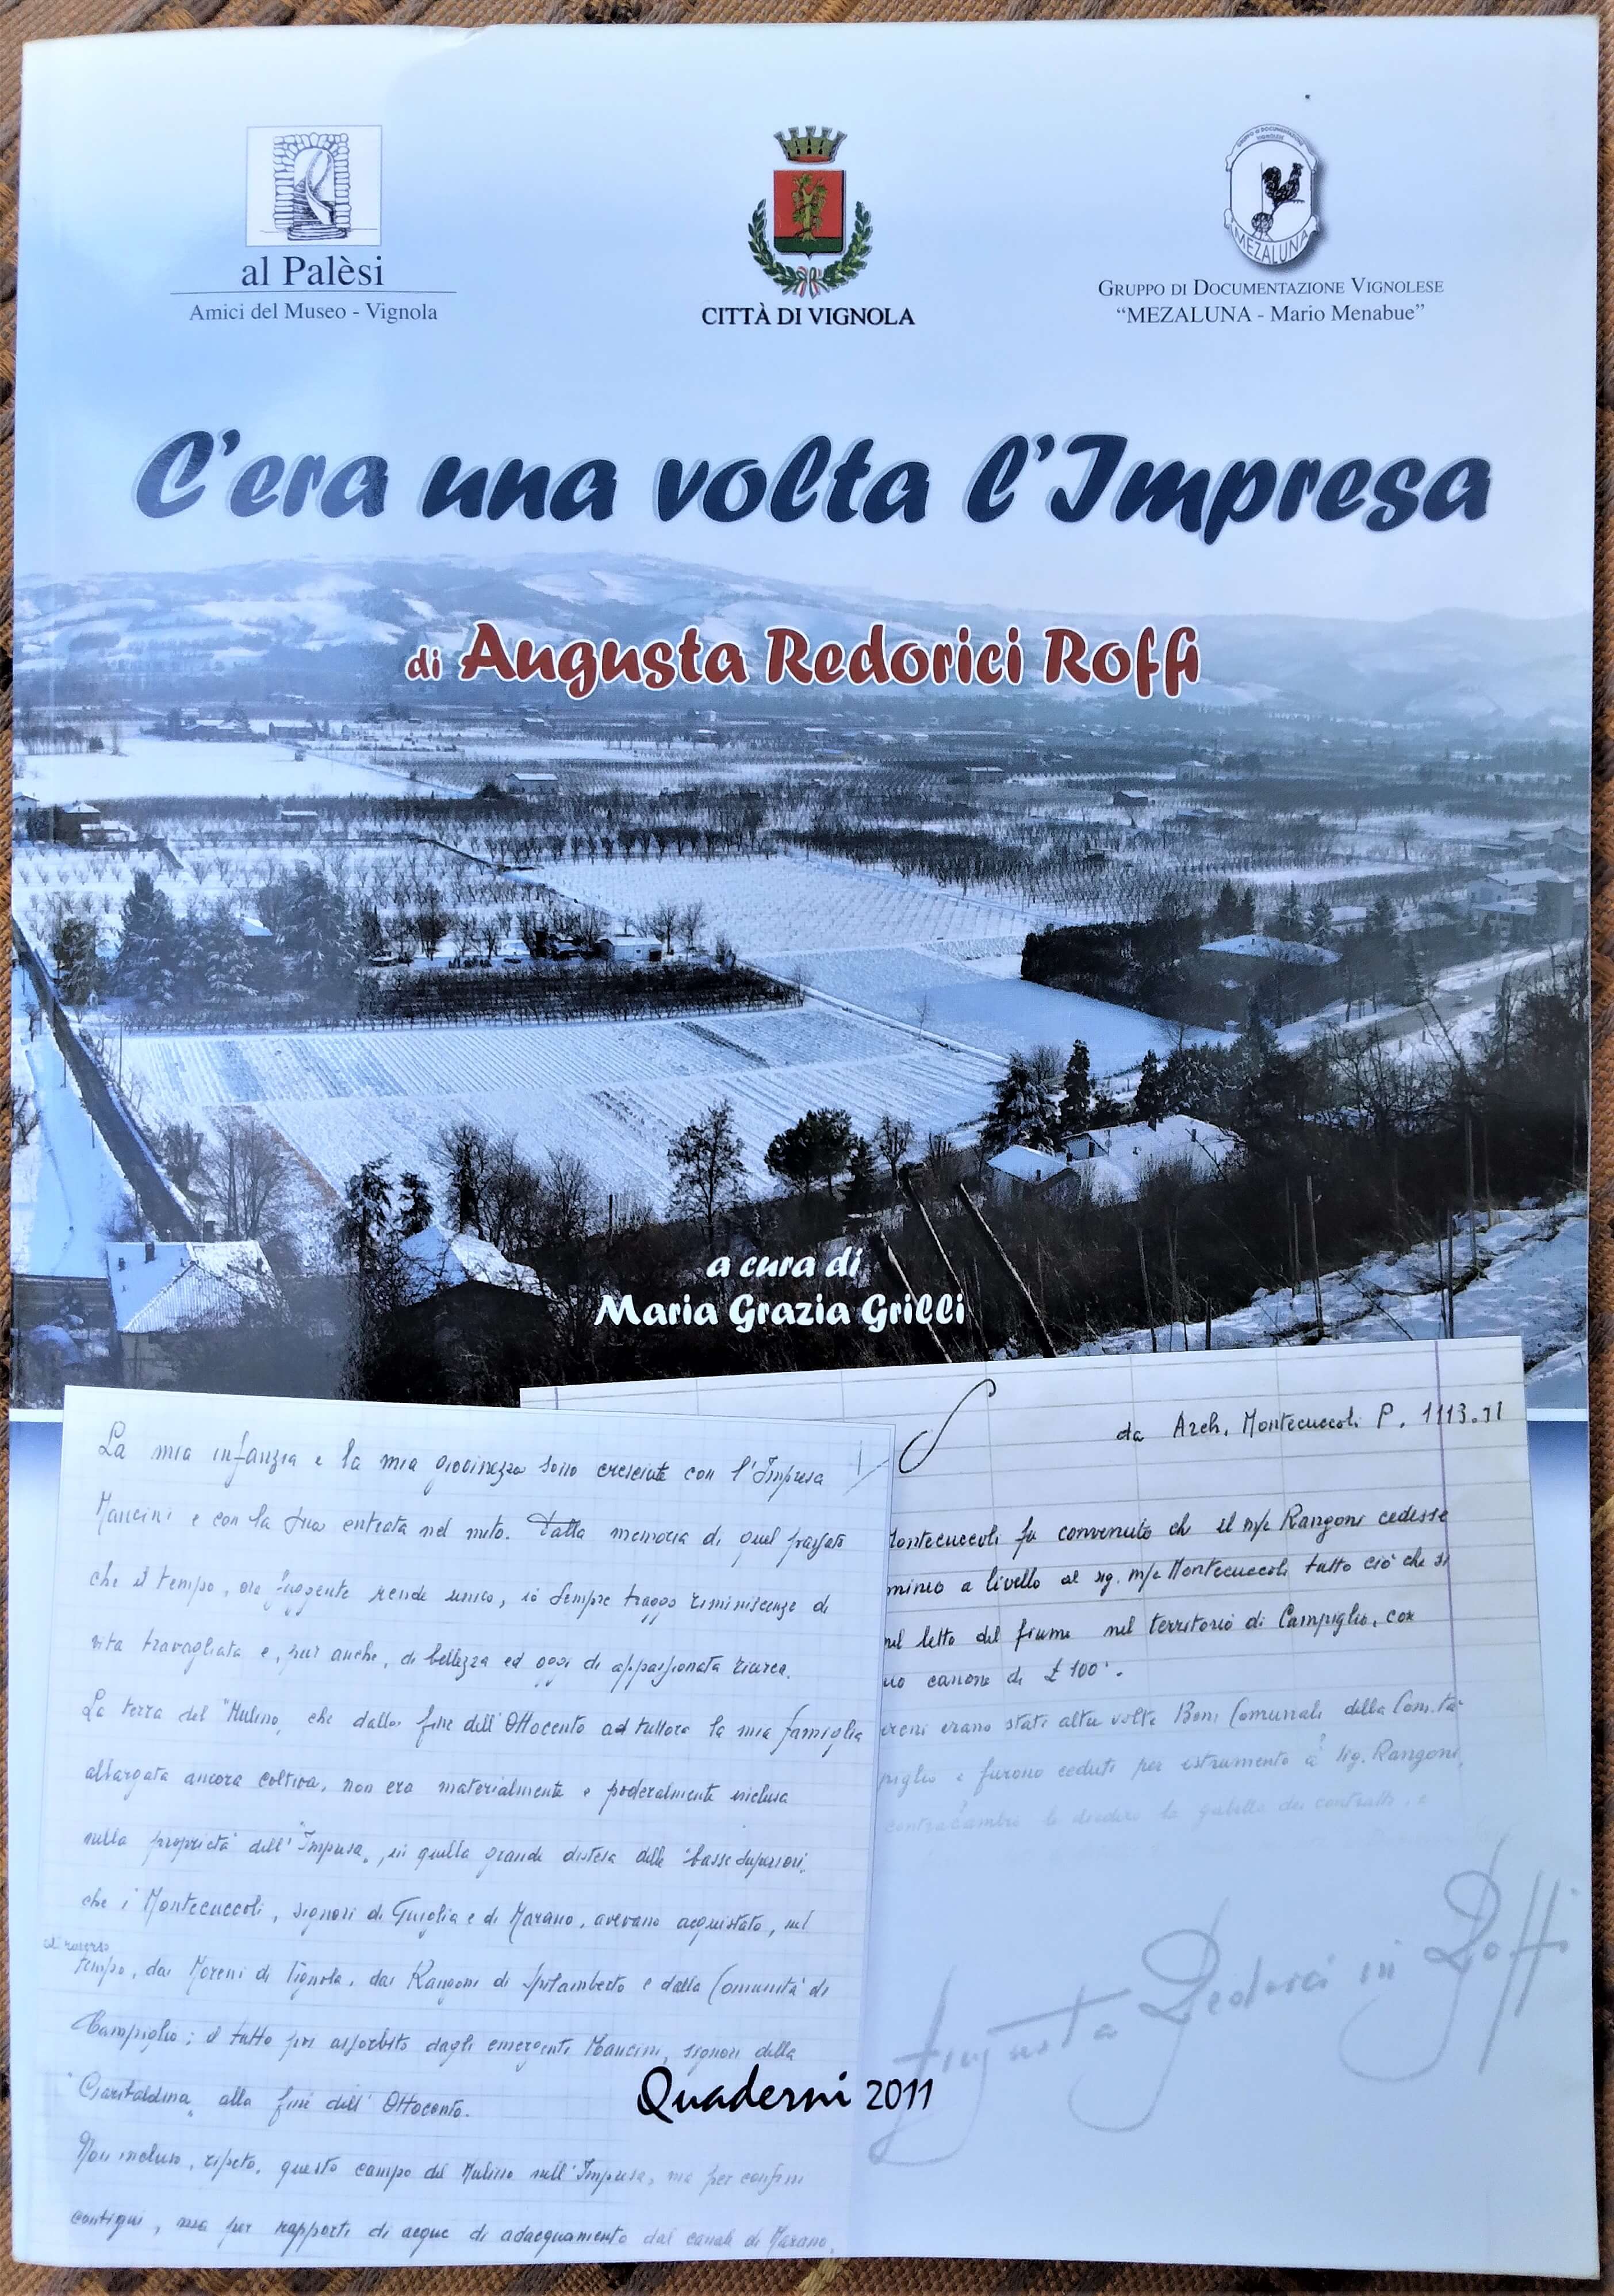 al Palèsi
Amici del Museo - Vignola
CITTÀ DI VIGNOLA
MEZALUNA
GRUPPO DI DOCUMENTAZIONE VIGNOLESE
"MEZALUNA - Mario Menabue"
C'era una volta l'Impresa
di Augusta Redorici Roffi
a cura di
Maria Grazia Grilli
La mia infanzia e la mia giovinezza sono cresciute con l'Impresa
Mancini e con la sua entrata nel mito. Dalla memoria di quel passato
che il tempo, ora fuggente rende unico, io sempre traggo reminiscenze di
vita travagliata e, pur anche, di bellezza ed oggi di appassionata ricerca.
La terra del "Mulino, che dalla fine dell'Ottocento ad tuttora la mia famiglia
allargata ancora coltiva, non era materialmente e poderalmente inclusa
nella proprietà dell'"Impresa", in quella grande distesa delle "basse superiori"
che i Montecuccoli, signori di Guiglia e di Marano, avevano acquistato, nel
tempo, dai Moreni di Vignola, dai Rangoni di Spilamberto e dalla Comunità di
Campiglio; il tutto poi assorbito dagli emergenti Mancini, signori della
"Garibaldina" alla fine dell'Ottocento.
Non incluso, ripeto, questo campo del Mulino nell'Impresa, ma per confini
contigui, ma per rapporti di acque di adacquamento dal canale di Marano.
da Arch. Montecuccoli P. 1113.71
Montecuccoli fu convenuto che il m/se Rangoni cedesse
a livello al sig. m/se Montecuccoli tutto ciò che si
nel letto del fiume nel territorio di Campiglio, con
canone di £ 100
erano stati altre volte Beni Comunali della Com.tà
e furono ceduti per istrumento a' sig. Rangoni,
contracambio le diedero la gabella dei contratti, e
Augusta Redorici in Roffi
Quaderni 2011